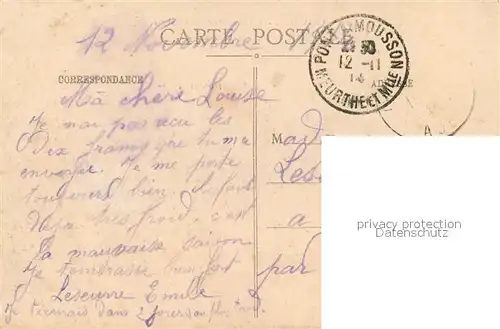 12 Novembre
CARTE POSTALE
PONT-A-MOUSSON
12 -11
14
MEURTHE-ET-Mlle
CORRESPONDANCE
Ma chère Louise
Je n'ai pas recu les
Dix francs que tu ma
envoyer. Je me porte
toujours bien. il fait
deja très froid. c'est
la mauvaise saison
Je t'embrasse bien fort
Leseurre Emile
Je dans 2 jours au plus tard.
Mad
Les
a
par
privacy protection
Datenschutz